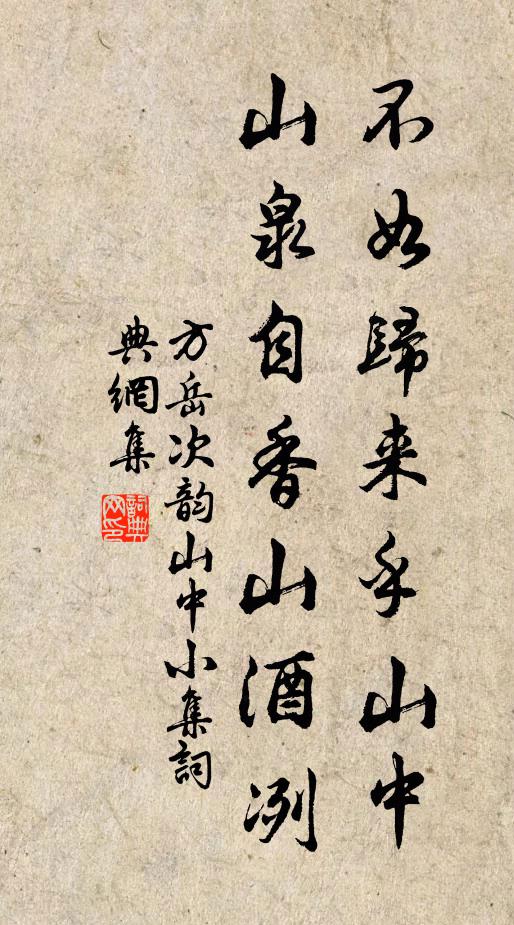 不如歸来乎山中
山泉自香山酒冽
方岳次韵山中小集詞
典網集
詞典網印